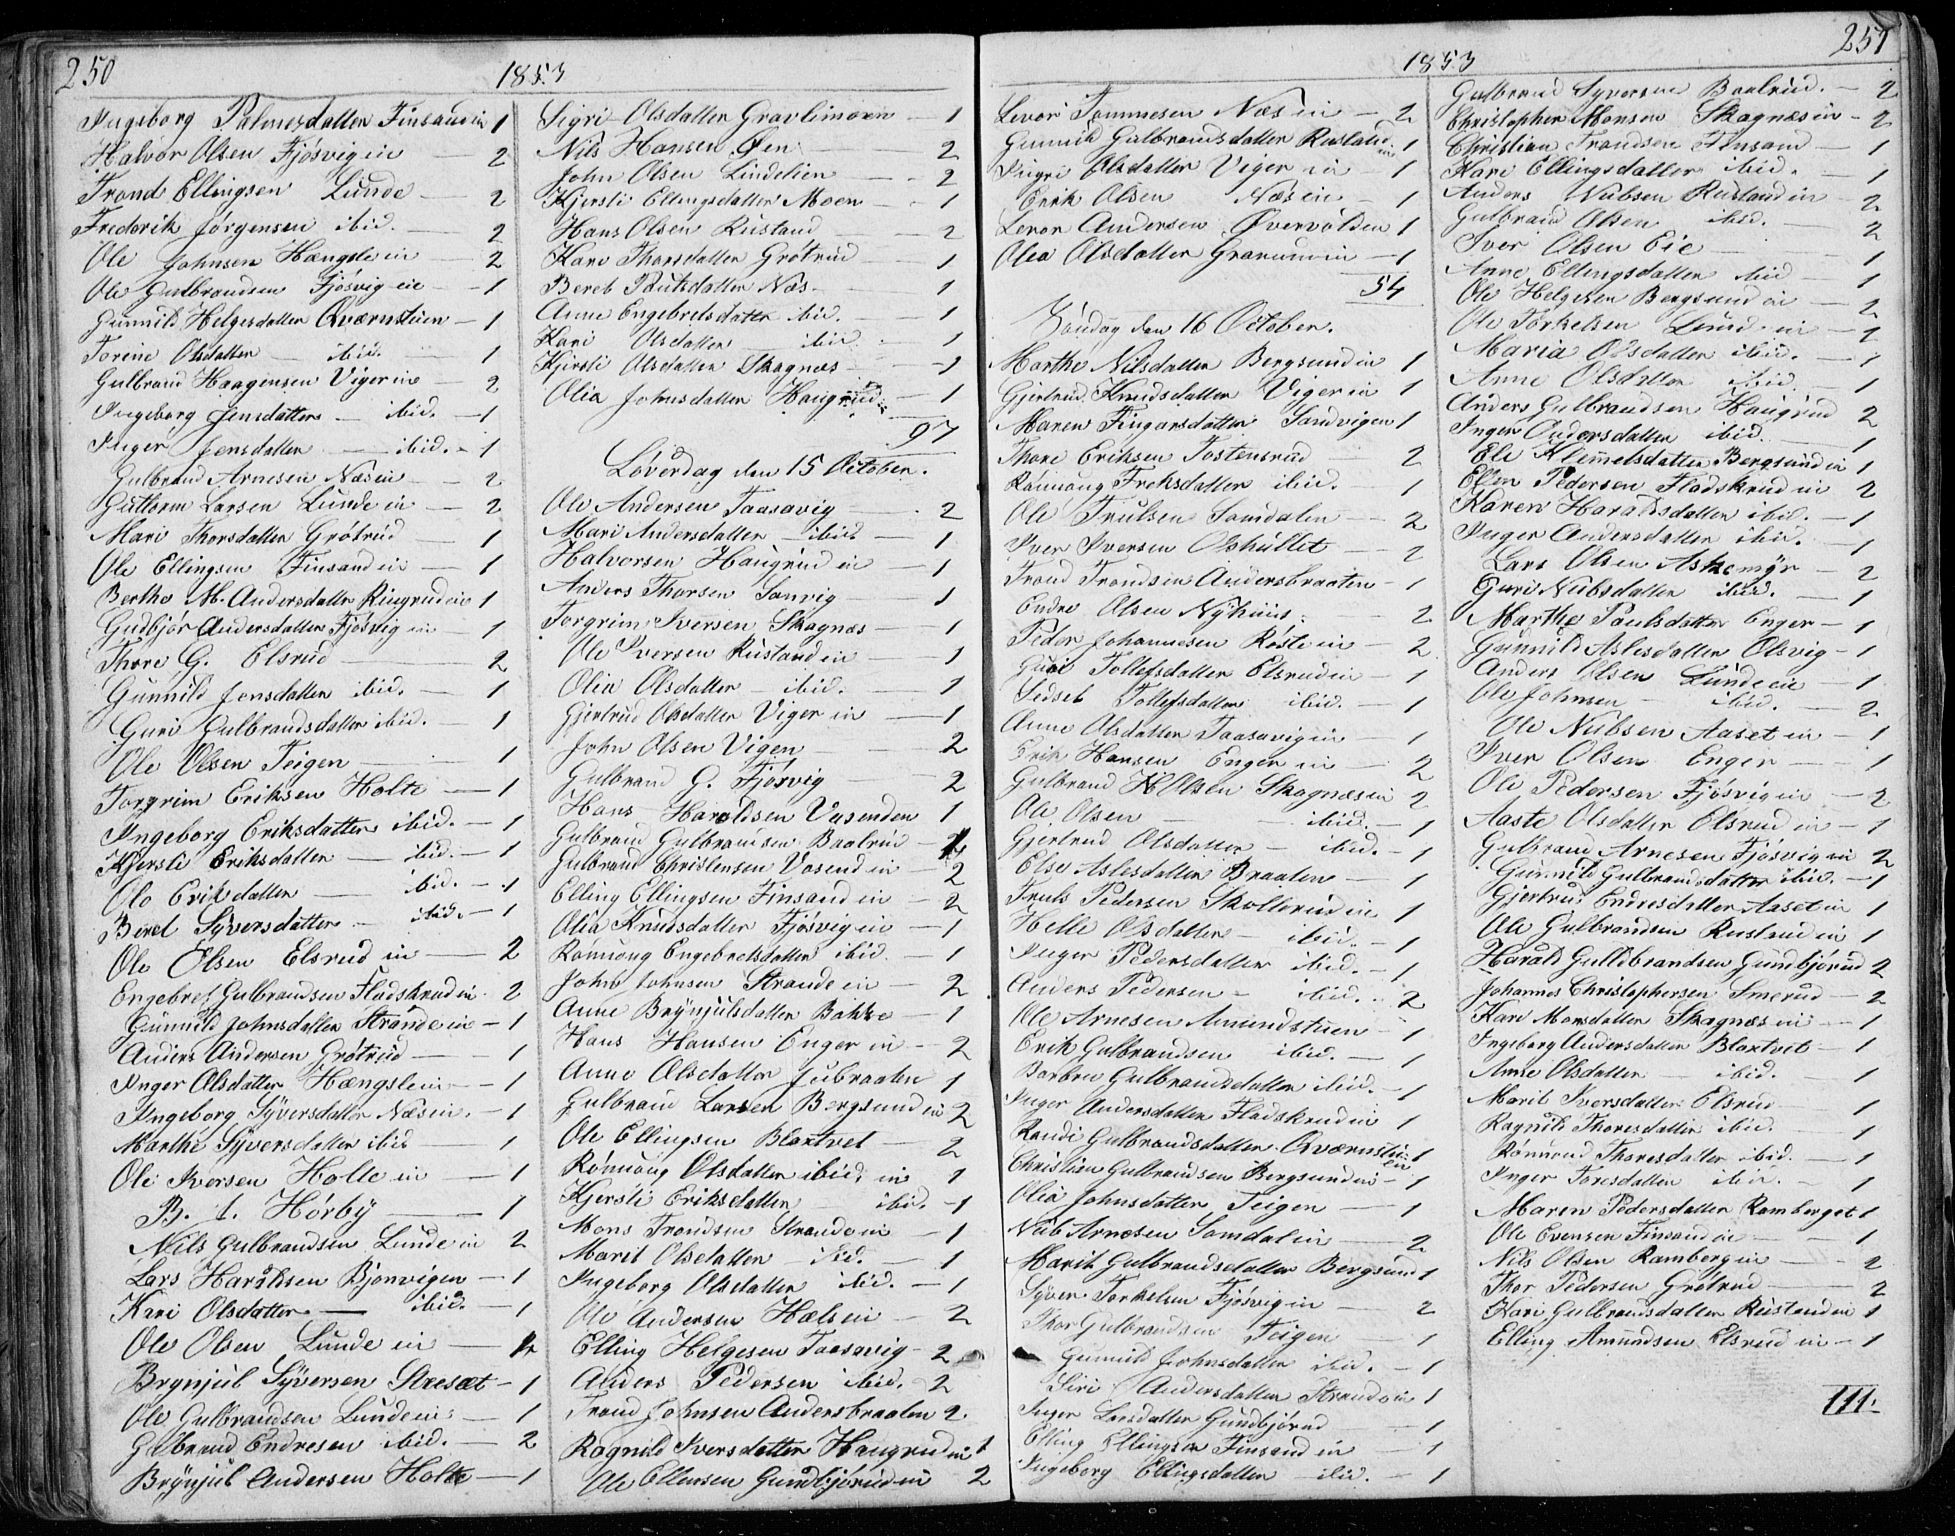 250
1853
Ingeborg Palmesdatter Finsand ie 1
Halvor Olsen Fjøsvig ie — 2
Trond Ellingsen Lunde — 2
Frederik Jørgensen ibid. — 2
Ole Johnsen Hængsle ie — 2
Ole Gulbrandsen Fjøsvig eie — 1
Gunnild Helgesdatter Qværnstuen — 1
Torine Olsdatter — ibid. 1
Gulbrand Haagensen Viger ie — 2
Ingeborg Jensdatter — ibid. — 1
Inger Jensdatter — ibid. — 1
Gulbrand Arnesen Næs ie — 2
Guttorm Larsen Lunde ie — 2
Mari Thorsdatter Grøtrud — 1
Ole Ellingsen Finsand ie — 1
Berthe M. Andersdatter Ringrud eie 1
Gudbjør Andersdatter Fjøsvig ie — 1
Thore G. Elsrud — 2
Gunnild Jensdatter ibid. — 1
Guri Gulbrandsdatter ibid. — 1
Ole Olsen Teigen — 1
Torgrim Eriksen Holte — 1
Ingeborg Eriksdatter ibid. — 1
Kjersti Eriksdatter — ibid. — 1
Ole Eriksdatter — ibid. — 1
Beret Syversdatter — ibid. — 1
Ole Olsen Elsrud ie — 2
Engebret Gulbrandsen Fladskrud ie 2
Gunnild Johnsdatter Strande ie — 1
Anders Andersen Grøtrud — 1
Inger Olsdatter Hængsle ie — 1
Ingeborg Syversdatter Næs ie. — 1
Marthe Syversdatter ibid — 1
Ole Iversen Holte ie — 1
B. A. Hørby — 1
Nils Gulbrandsen Lunde ie 2
Lars Haraldsen Bjonvigen — 1
Kari Olsdatter. — ibid. — 1
Ole Olsen Lunde ie — 1
Brynjul Syversen Stresæt — 1
Ole Gulbrandsen Lunde ie — 1
Gulbrand Endresen ibid. — 2
Brynjul Andersen Holte — 1
Sigri Olsdatter Gravlimoen — 1
Nils Hansen Øen — 2
John Olsen Lindelien — 2
Kjersti Ellingsdatter Moen — 1
Hans Olsen Rustand — 2
Kari Thorsdatter Grøtrud — 1
Beret Paulsdatter Næs. — 1
Anne Engebretsdatter ibid. — 1
Kari Olsdatter — ibid. — 1
Kjersti Olsdatter Skagnæs — 1
Olia Johnsdatter Haugrud — 1
97
Løverdag den 15 October.
Ole Andersen Taasavig — 2
Mari Andersdatter — ibid — 1
Halvorsen Haugrud ie — 1
Anders Thorsen Sanvig — 1
Torgrim Iversen Skagnæs — 1
Ole Iversen Rustand ie — 1
Olia Olsdatter — ibid. — 1
Gjertrud Olsdatter Viger ie — 1
John Olsen Vigen — 2
Gulbrand G. Fjøsvig — 2
Hans Haraldsen Vasenden 1
Gulbrand Gulbrandsen Baalrud —
Gulbrand Christensen Vasend ie — 2
Elling Ellingsen Finsand ie — 2
Olia Knudsdatter Fjøsvig ie — 1
Rønnaug Engebretsdatter ibid. 1
John Johnsen Strande ie — 2
Anne Brynjulsdatter Bakke — 1
Hans Hansen Enger ie — 2
Anne Olsdatter Jubraaten 1
Gulbrand Larsen Bergsund ie 2
Ole Ellingsen Blaxtvet — 2
Rønnaug Olsdatter ibid. ie 1
Kjersti Eriksdatter ibid. — 1
Mons Trondsen Strande ie — 1
Marit Olsdatter — ibid. — 1
Ingeborg Olsdatter ibid. — 1
Ole Andersen Hæls ie — 2
Elling Helgesen Taasavig — 2
Anders Pedersen ibid. 2
Trond Johnsen Andersbraaten 2.
Ragnild Iversdatter Haugrud ie 1
Ole Ellensen Gundbjørud ie 2
251
1853
Levor Tommesen Næs ie — 2
Gunnild Gulbrandsdatter Rustand ie 1
Ingri Olsdatter Viger ie — 1
Erik Olsen Næs ie — 1
Levor Andersen Øvervolden 1
Olea Olsdatter Granum ie — 1
54
Søndag den 16 October.
Marthe Nilsdatter Bergsund ie 1
Gjertrud Knudsdatter Viger ie 1
Maren Fingarsdatter Sandvigen 1
Thore Eriksen Tostensrud — 2
Rønnaug Eriksdatter ibid. — 1
Ole Trulsen Somdalen — 2
Iver Iversen Olshullet — 2
Trond Trondsen Andersbraaten — 1
Endre Olsen Nyhuus — 2
Peder Johannesen Røste ie — 2
Guri Tollefsdatter Elsrud ie — 1
Sidsel Tollefsdatter ibid. — 1
Anne Olsdatter Taasavig ie — 1
Erik Hansen Enger ie — 2
Gulbrand H Olsen Skagnæs ie 2
Ole Olsen — ibid. — 1
Gjertrud Olsdatter — ibid. — 1
Else Aslesdatter Braaten — 1
Truls Pedersen Skollerud ie 1
Helle Olsdatter — ibid. — 1
Inger Pedersdatter ibid. — 1
Anders Pedersen — ibid. — 2
Ole Arnesen Amundstuen — 1
Erik Gulbrandsen ibid. — 1
Barbro Gulbrandsdatter ibid. — 1
Inger Andersdatter Fladskrud ie 1
Randi Gulbrandsdatter Qværnstu ie 1
Christian Gulbrandsen Bergsund ie — 1
Olia Johnsdatter Teigen — 1
Nub Arnesen Somdal ie — 2
Marit Gulbrandsdatter Bergsund 1
Syver Torkelsen Fjøsvig ie — 2
Thor Gulbrandsen Teigen — 1
Gunnild Johnsdatter ibid. — 1
Siri Andersdatter Strande ie 1
Inger Larsdatter Gundbjørud — 1
Elling Ellingsen Finsand ie — 1
Ingeborg Ellingsdatter — ibid. — 1
Gulbrand Syversen Baalrud. — 2
Christopher Monsen Skagnæs ie — 2
Christian Trondsen Finsand — 1
Kari Ellingsdatter ibid. — 1
Anders Nubsen Rustand ie — 2
Gulbrand Olsen ibid. — 2
Iver Olsen Eie — 1
Anne Ellingsdatter ibid — 1
Ole Helgesen Bergsund ie — 2
Ole Torkelsen Lund ie — 1
Maria Olsdatter ibid. — 1
Anne Olsdatter ibid. — 1
Anders Gulbrandsen Haugrud 2
Inger Andersdatter ibid. — 1
Eli Klemmetsdatter Bergsund ie 1
Ellen Pedersen Fladskrud ie 2
Karen Haraldsdatter ibid. — 1
Inger Andersdatter ibid. — 1
Lars Olsen Askemyr — 2
Guri Nubsdatter ibid. — 1
Marthe Paulsdatter Enger — 1
Gunnild Aslesdatter Olsvig — 1
Anders Olsen Lunde eie — 1
Ole Johnsen — ibid. — 2
Ole Nubsen Aaset ie — 1
Iver Olsen Enger — 1
Ole Pedersen Fjøsvig ie — 2
Aaste Olsdatter Elsrud ie — 1
Gulbrand Arnesen Fjøsvig ie 2
Gunnild Gulbrandsdatter ibid. — 1
Gjertrud Endresdatter Aaset ie 1
Ole Gulbrandsen Rustand ie 1
Harald Guldbrandsen Gundbjørud 2
Johannes Christophersen Smerud — 2
Kari Monsdatter Skagnæs ie — 1
Ingeborg Andersdatter Blaxtvet — 1
Anne Olsdatter — ibid. — 1
Marit Iversdatter Elsrud — 1
Ragnild Thoresdatter ibid. — 1
Rønnaug Thoresdatter ibid. — 1
Inger Toresdatter ibid. — 1
Maren Pedersdatter Ramberget 1
Ole Evensen Finsand ie — 1
Nils Olsen Ramberg ie — 2
Thor Pedersen Grøtrud — 2
Kari Gulbrandsdatter Rustand ie 1
Elling Amundsen Elsrud ie — 1
111.